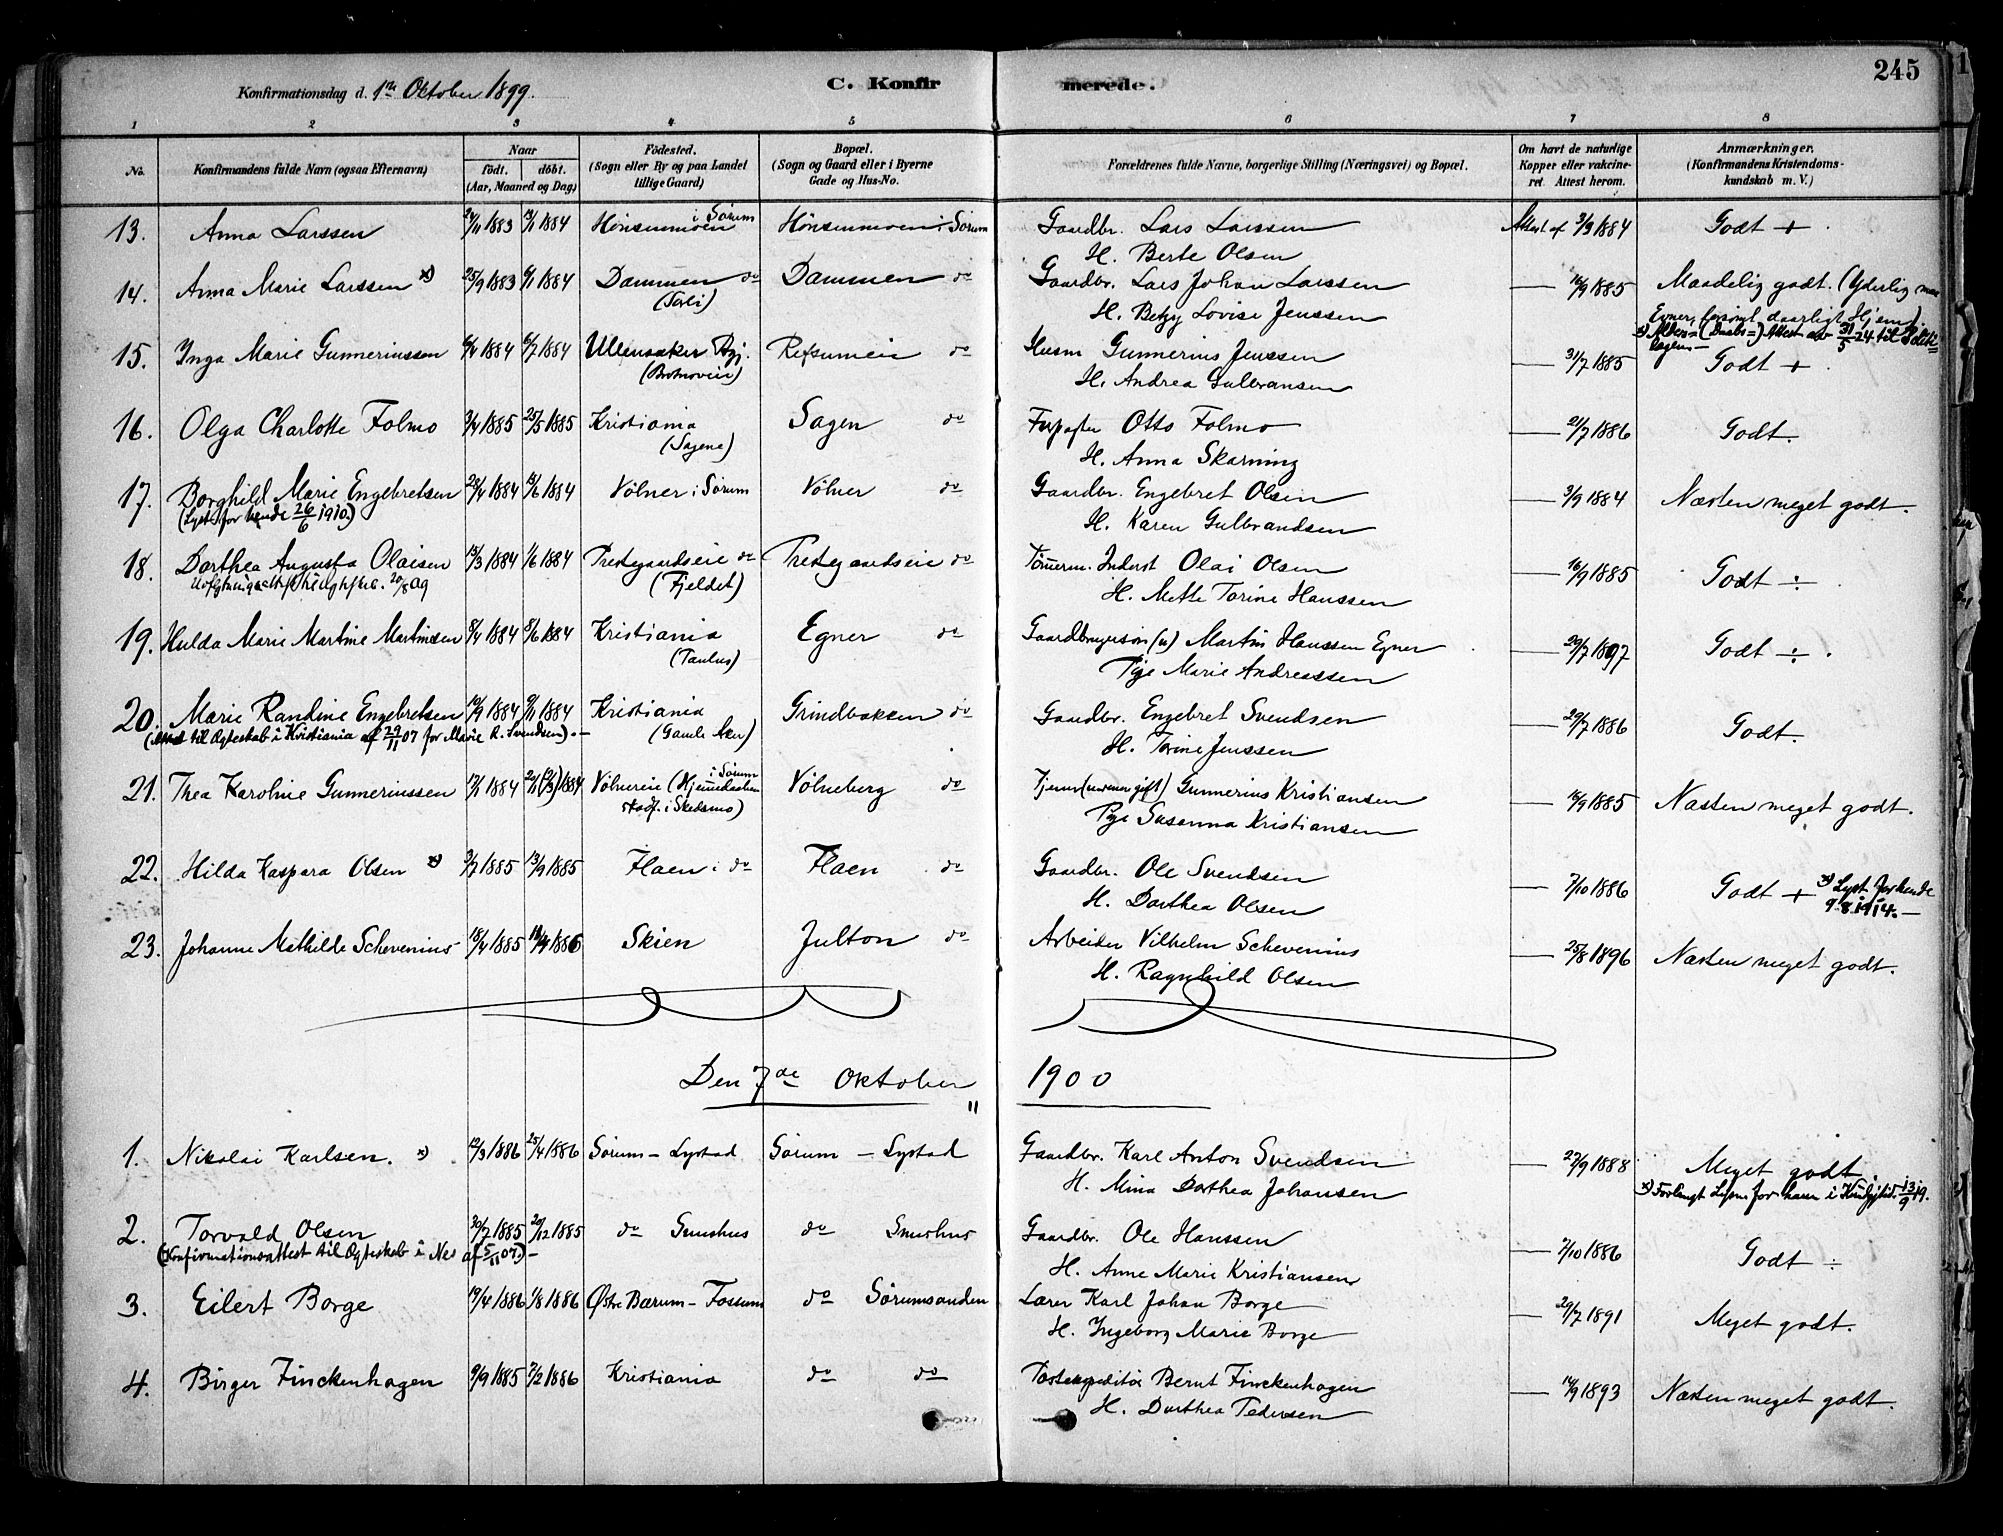 245
Konfirmationsdag d. 1ste Oktober 1899.
C. Konfirmerede.
1 2 3 4 5 6 7 8
No. Konfirmandens fulde Navn (ogsaa Efternavn) Naar födt. döbt. (Aar, Maaned og Dag) Födested. (Sogn eller By og paa Landet tillige Gaard) Bopæl. (Sogn og Gaard eller i Byerne Gade og Hus-No. Forældrenes fulde Navne, borgerlige Stilling (Næringsvei) og Bopæl. Om havt de naturlige Kopper eller vakcineret. Attest herom. Anmærkninger. (Konfirmandens Kristendomskundskab m. V.)
13. Anna Larssen 1883 1884 Hönsenmoen i Sørum Hönsenmoen i Sørum Gaardbr. Lars Larssen Attest af 3/9 1884 Godt +
H. Berte Olsen
14. Anna Marie Larssen x) 25/9 1883 6/1 1884 Dammen do Dammen do Gaardbr. Lars Johan Larssen — 16/9 1885 Maadelig godt. (Yderlig
H. Betzy Lovise Jenssen Evner, forsømt, daarligt Hjem)
15. Inga Marie Gunneriussen 6/4 1884 6/7 1884 Ullensaker do Husm Gunnerius Jenssen — 31/7 1885 Godt +
H. Andrea Gulbransen
16. Olga Charlotte Folmo 3/4 1885 25/5 1885 Kristiania Sagen do Otto Folmo — 21/7 1886 Godt.
(Sagene) H. Anna Skarning
17. Borghild Marie Engebretsen 28/4 1884 15/6 1884 Völner i Sørum Völner do Gaardbr. Engebret Olsen — 3/9 1884 Næsten meget godt.
(Lyst for hende 26/6 1910.) H. Karen Gulbrandsen
18. Dorthea Augusta Olaisen 15/3 1884 1/6 1884 Prestegaardseie do Prestegaardseie do Tömmerm. Inderst Olai Olsen — 16/9 1885 Godt ÷
(Fjeldet) H. Mette Torine Hanssen
19. Hulda Marie Martine Martinsen 8/4 1884 8/6 1884 Kristiania Egner do Gaardbrugersön (u) Martin Hanssen Egner — 29/7 1897 Godt ÷
(Paulus) Pige Marie Andreassen
20. Marie Randine Engebretsen 10/9 1884 9/11 1884 Kristiania Grindbakken do Gaardbr. Engebret Svendsen — 29/7 1886 Godt.
(Attest til Ægteskab i Kristiania af 29/11 07 for Marie R. Svendsen). — (Gamle Aker) H. Torine Jenssen
21. Thea Karoline Gunneriussen 1884 1884 Völnereie (Hjemmedøbt i Sørum Völneberg do Gunnerius Kristiansen — 16/9 1885 Næsten meget godt.
stadf. i Skedsmo) Pige Susanna Kristiansen
22. Hilda Kaspara Olsen x) 3/7 1885 13/9 1885 Flaen i do Flaen do Gaardbr. Ole Svendsen — 7/10 1886 Godt + x) Lyst for hende
H. Dorthea Olsen 9.8.1914. —
23. Johanne Mathilde Schevenius 18/4 1885 1886 Skien Julton do Arbeider Vilhelm Schevenius — 25/8 1896 Næsten meget godt.
H. Ragnhild Olsen
Den 7de Oktober 1900
1. Nikolai Karlsen. x) 12/3 1886 25/4 1886 Sørum – Lystad Sørum – Lystad Gaardbr. Karl Anton Svendsen — 27/9 1888 Meget godt
H. Mina Dorthea Johansen x) Forlangt Lysn. for ham i 13/9 19.
2. Torvald Olsen 30/7 1885 20/12 1885 do Smushus do Smushus Gaardbr. Ole Hanssen — 7/10 1886 Godt ÷
(Konfirmationsattest til Ægteskab i Nes af 5/11 07.) – H. Anne Marie Kristiansen
3. Eilert Borge 19/4 1886 1/8 1886 Østre Bærum – Fossum do Sørumsanden Lærer Karl Johan Borge — 29/7 1891 Meget godt.
H. Ingeborg Marie Borge
4. Birger Finckenhagen 9/9 1885 7/2 1886 Kristiania do do Postexpeditör Bernt Finckenhagen — 14/9 1893 Næsten meget godt.
H. Dorthea Pedersen